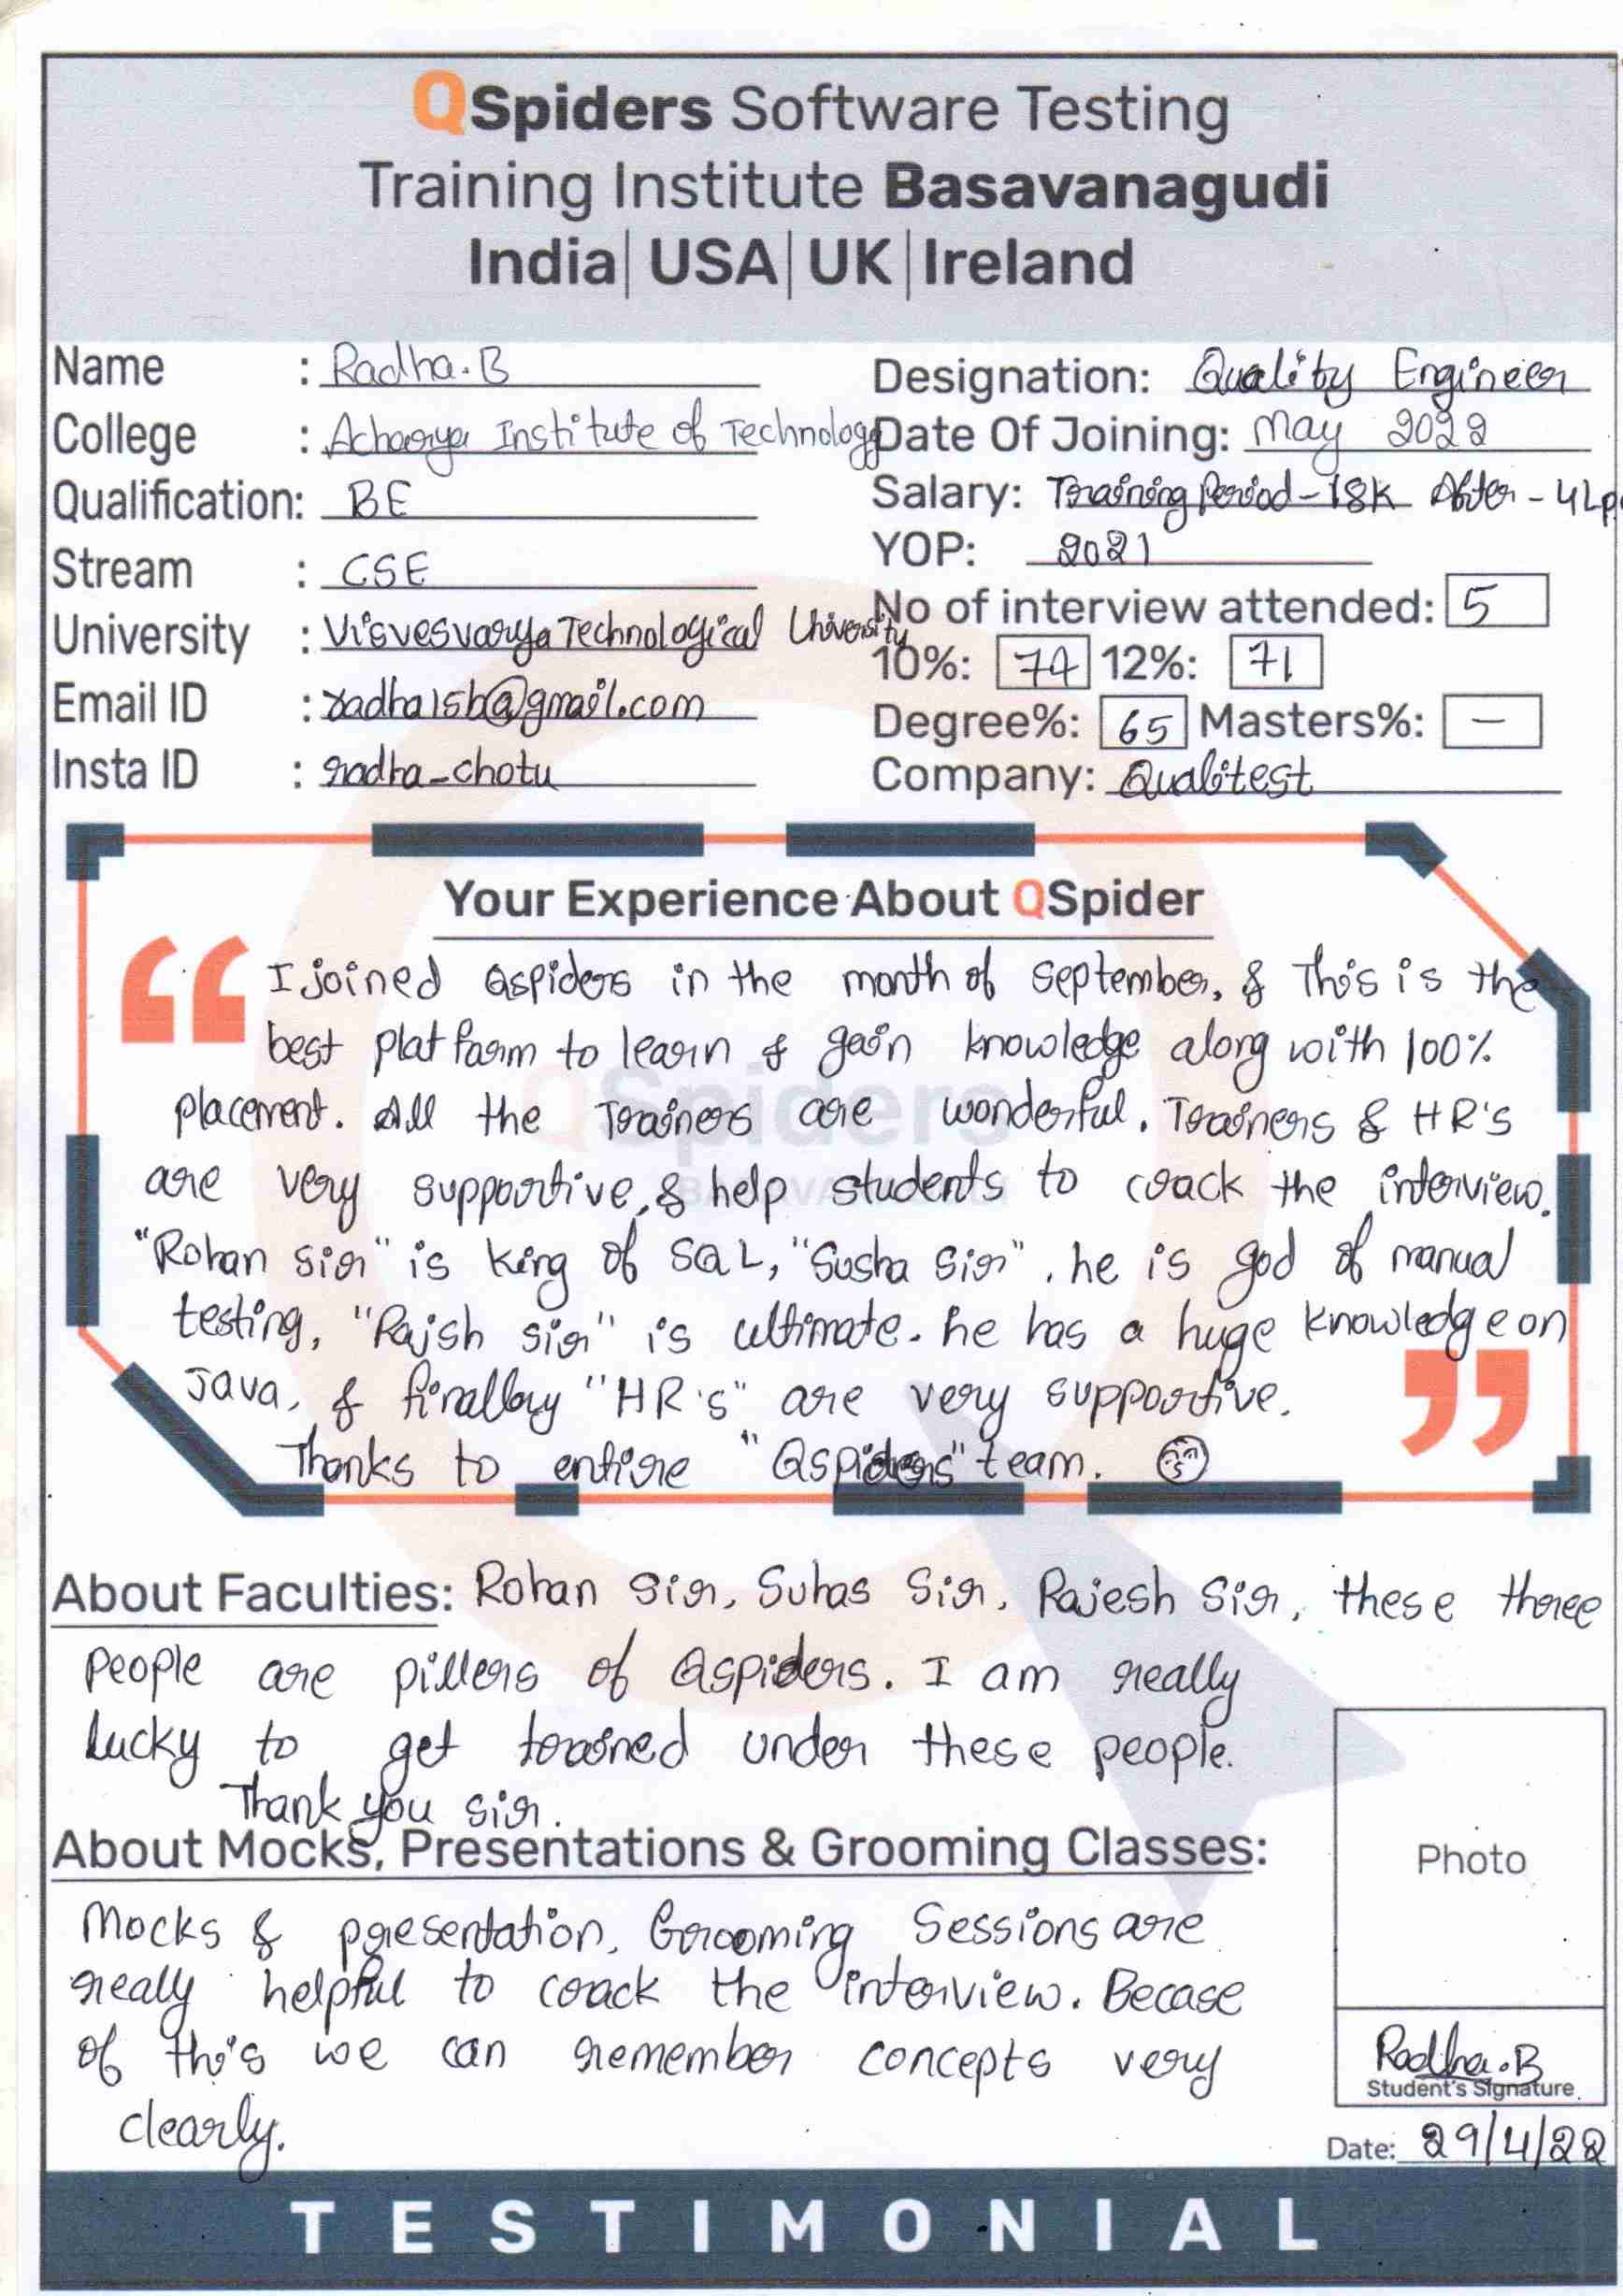 QSpiders Software Testing
Training Institute Basavanagudi
India| USA| UK| Ireland
Name : Radha.B
College : Acharya Institute of Technology
Qualification: BE
Stream : CSE
University : Visvesvarya Technological University
Email ID : radha15b@gmail.com
Insta ID : radha_chotu
Designation: Quality Engineer
Date Of Joining: May 2022
Salary: Training Period - 18K After - 4 Lp
YOP: 2021
No of interview attended: 5
10%: 74 12%: 71
Degree%: 65 Masters%: –
Company: Qualitest
Your Experience About QSpider
I joined Qspiders in the month of September, & This is the
best platform to learn & gain knowledge along with 100%
placement. All the Trainers are wonderful. Trainers & HR's
are very supportive, & help students to crack the interview.
"Rohan sir" is king of SQL, "Susha Sir", he is god of manual
testing, "Rajsh sir" is ultimate. he has a huge knowledge on
Java, & finallay "HR's" are very supportive.
Thanks to entire "Qspiders" team.
QSpiders
About Faculties: Rohan Sir, Suhas Sir, Rajesh Sir, these three
people are pillers of Qspiders. I am really
lucky to get trained under these people.
Thank you sir.
About Mocks, Presentations & Grooming Classes:
Mocks & presentation, Grooming Sessions are
really helpful to crack the interview. Becase
of this we can remember concepts very
clearly.
Photo
Radha.B
Student's Signature
Date: 29/4/22
TESTIMONIAL